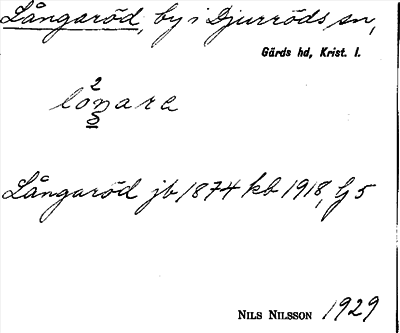 Långaröd, by i Djurröds sn,
Gärds hd, Krist. l.
2
lonara
5
Långaröd jb 1874 kb 1918, G 5
NILS NILSSON 1929